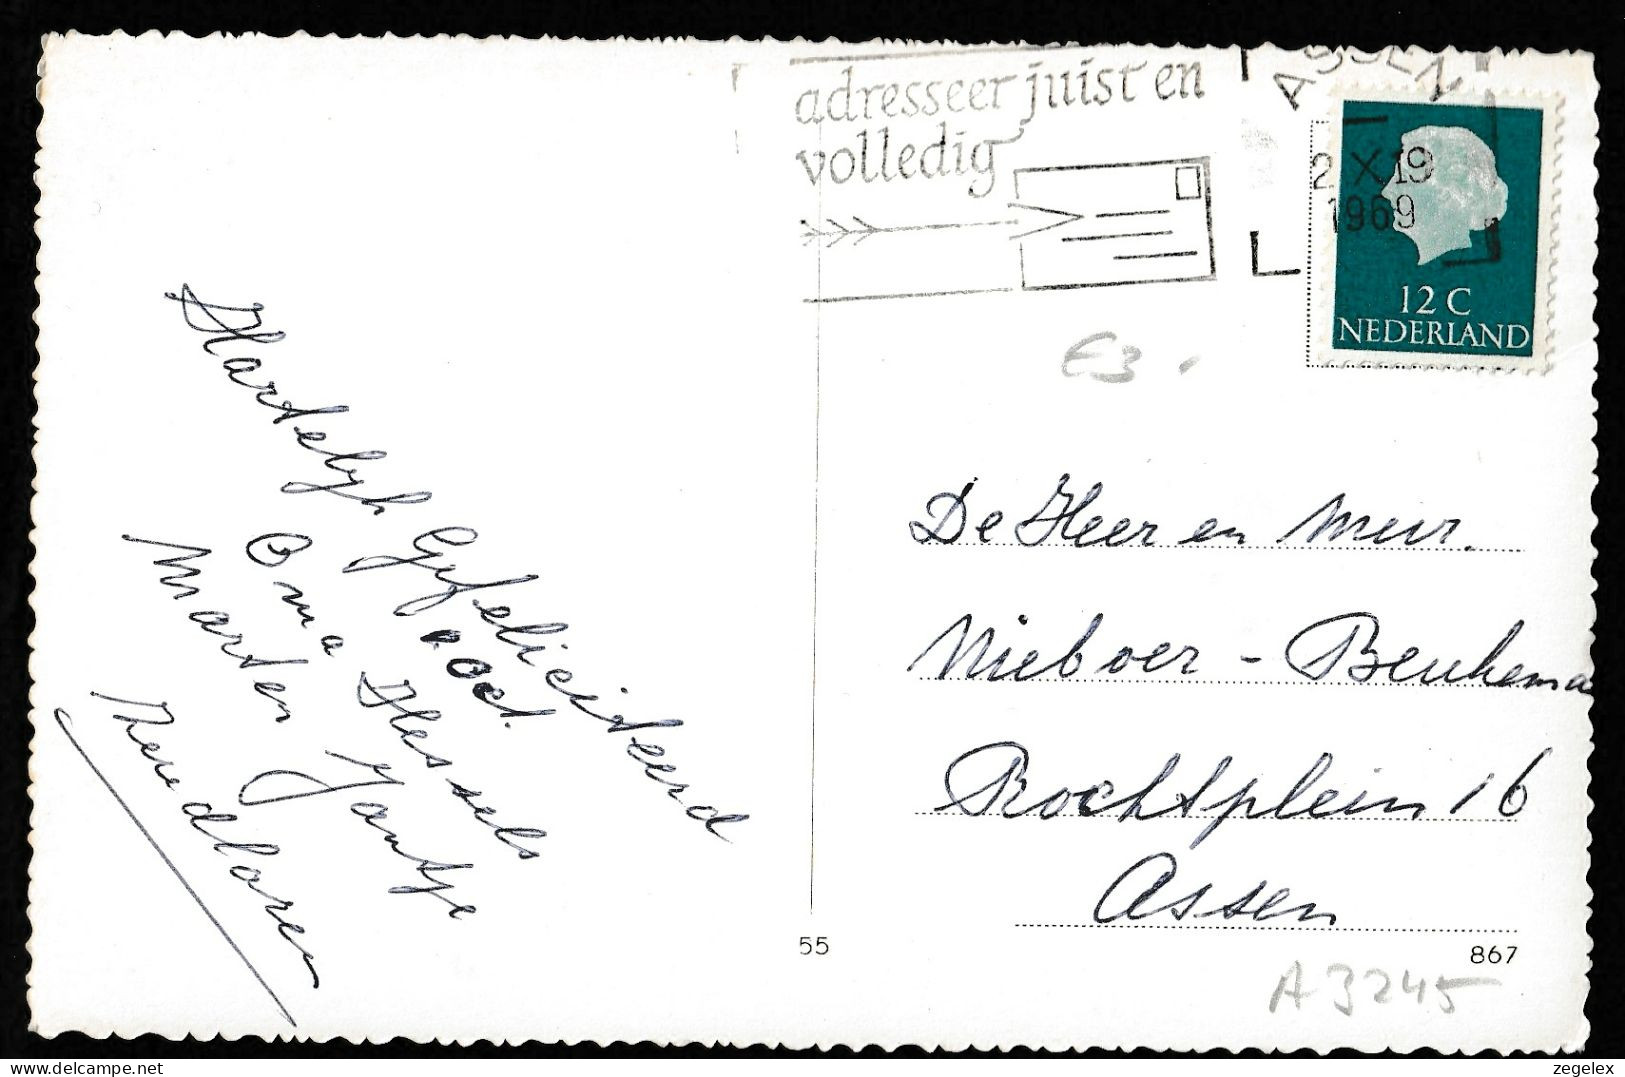 adresseer juist en
volledig
ASSEN
2 X 19
1969
12 C
NEDERLAND
€3.
Hartelijk Gefeliciteerd
Oct.
Oma Hessels
Marten Jantje
De Heer en Mevr.
Nieboer - Beukema
Rochtplein 16
Assen
55
867
A 3245
delcampe.net
zegelex